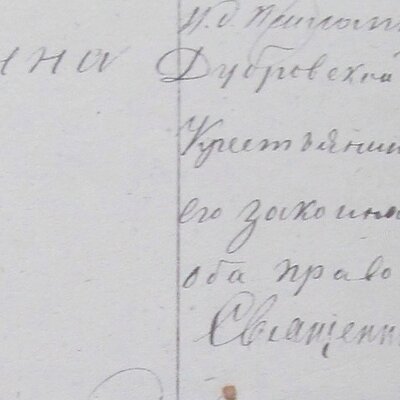 ина Дубровской
Крестьянин
его законна
оба право
Священн